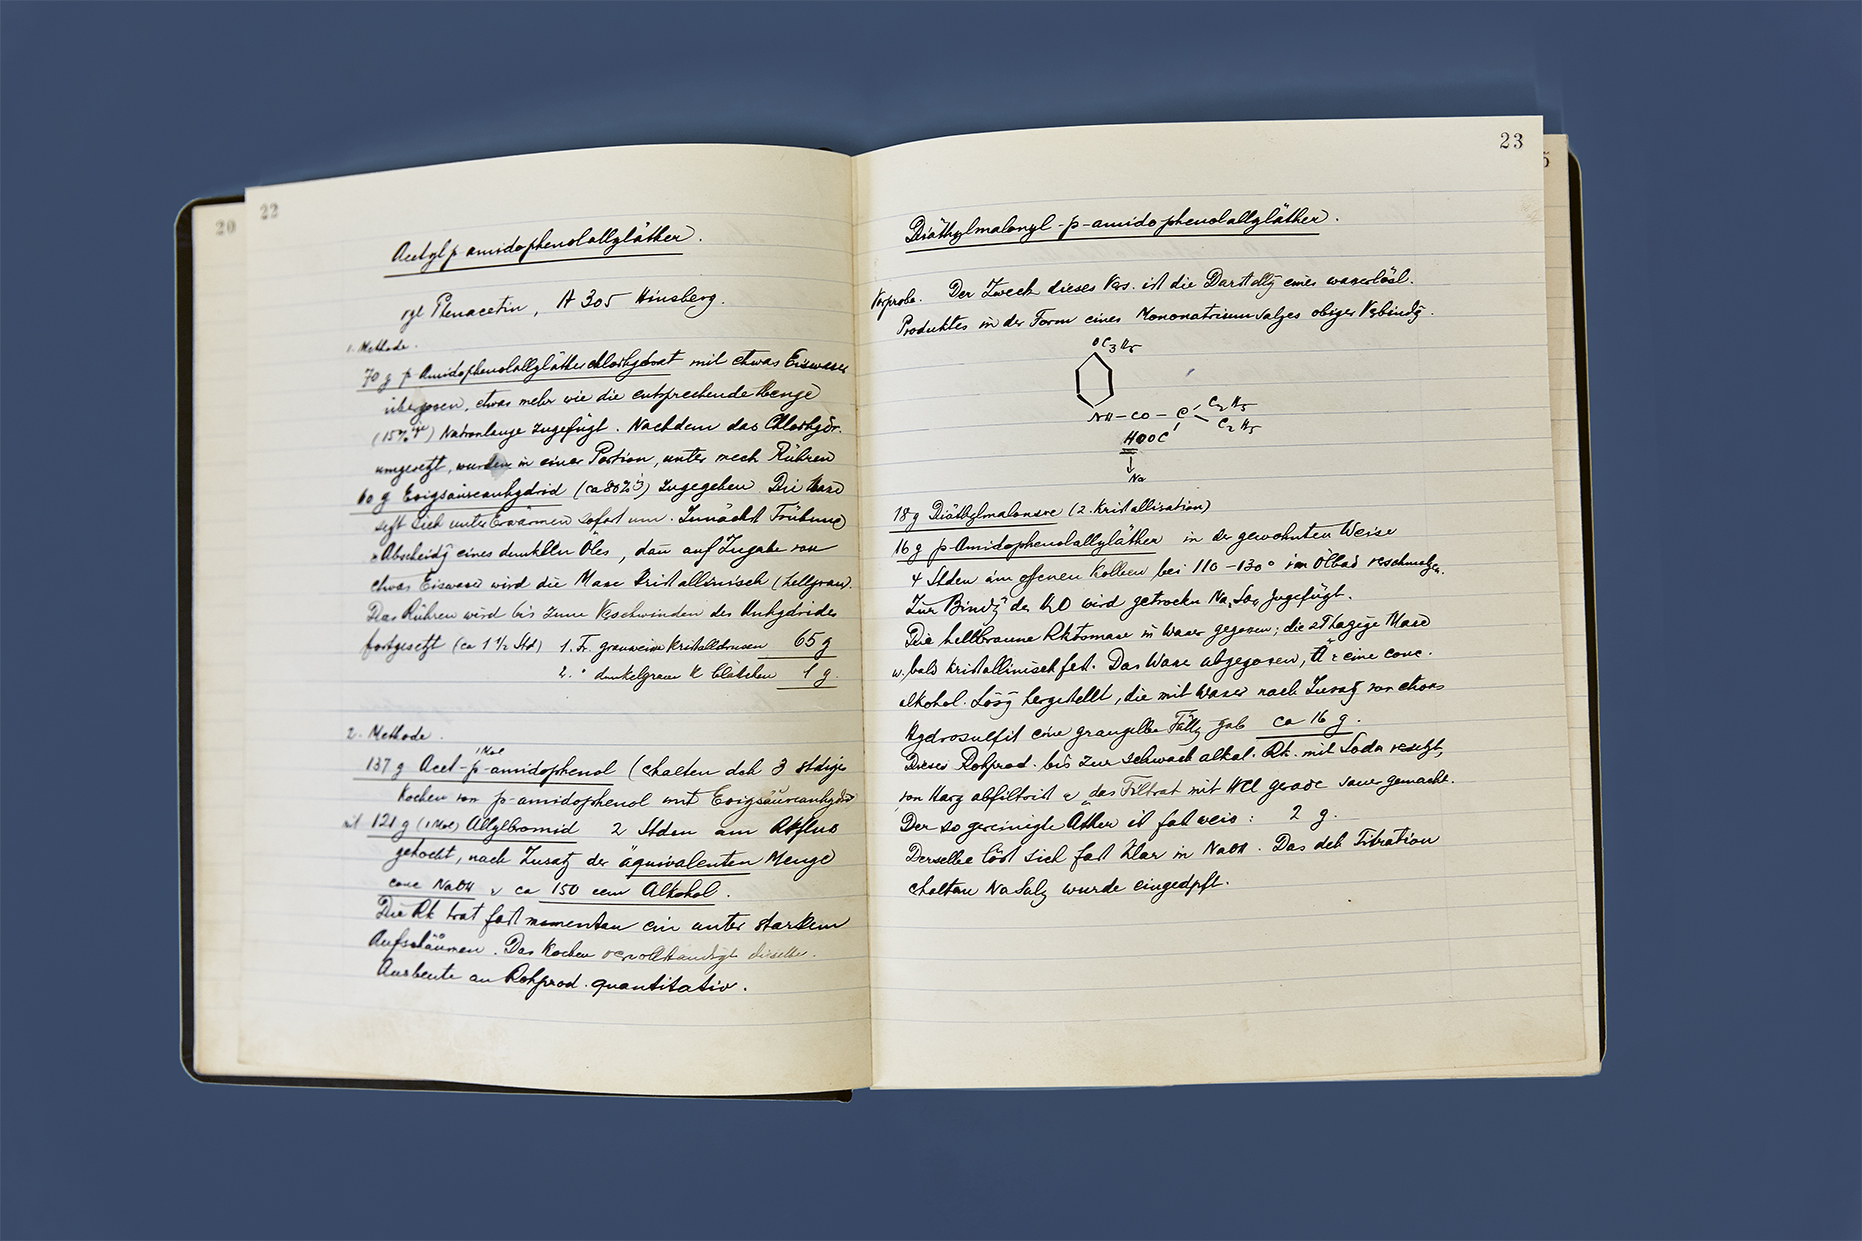 20
22
Acetyl p amidophenolallyläther.
vgl Phenacetin, A 305 Hinsberg.
1. Methode.
70 g p Amidophenolallylätherchlorhydrat mit etwas Eiswasser
übergossen, etwas mehr wie die entsprechende Menge
(15%ige) Natronlauge zugefügt. Nachdem das Chlorhydr.
umgesetzt, wurden in einer Portion, unter mech Rühren
60 g Essigsäureanhydrid (ca 80%) zugegeben Die Masse
setzt sich unter Erwärmen sofort um. Zunächst Trübung
Abscheidg eines dunklen Öles, dann auf Zugabe von
etwas Eiswasser wird die Masse kristallinisch (hellgrau).
Das Rühren wird bis zum Verschwinden des Anhydrides
fortgesetzt (ca 1 1/2 Std) 1. Fr. grauweisse Kristalldrusen 65 g
2. " dunkelgraue K blätschen 1 g.
2. Methode.
1 Mol
137 g Acet-p-amidophenol (erhalten dch 3 stdiges
Kochen von p-amidophenol mit Essigsäureanhydrid
mit 121 g (1 Mol) Allylbromid 2 Stden am Rkflus
gekocht, nach Zusatz der äquivalenten Menge
conc NaOH & ca 150 ccm Alkohol.
Die Rk trat fast momentan ein unter starkem
Aufschäumen. Das Kochen vervollständigt dieselbe.
Ausbeute an Rohprod. quantitativ.
23
5
Diäthylmalonyl-p-amidophenolallyläther.
Vorprobe. Der Zweck dieses Vers. ist die Darstellg eines wasserlösl.
Produktes in der Form eines Mononatriumsalzes obiger Verbindg.
OC3H5
NH - CO - C C2H5
C2H5
HOOC
Na
18 g Diäthylmalonsre (2. Kristallisation)
16 g p-Amidophenolallyläther in der gewohnten Weise
4 Stden im offenen Kolben bei 110-130° im Ölbad verschmolzen.
Zur Bindg des H2O wird getrockn Na2SO4 zugefügt.
Die hellbraune Rktsmasse in Wasser gegossen; die Masse
w. bald kristallinisch fest. Das Wasser abgegossen, eine conc.
alkohol. Lösg hergestellt, die mit Wasser nach Zusatz von etwas
Hydrosulfit eine graugelbe Fällg gab ca 16 g.
Dieses Rohprod. bis zur schwach alkal. Rk. mit Soda versetzt,
von Harz abfiltriert & das Filtrat mit HCl gerade sauer gemacht.
Der so gereinigte Äther ist fast weiss: 2 g.
Derselbe löst sich fast klar in NaOH. Das dch Titration
erhaltene NaSalz wurde eingedpft.